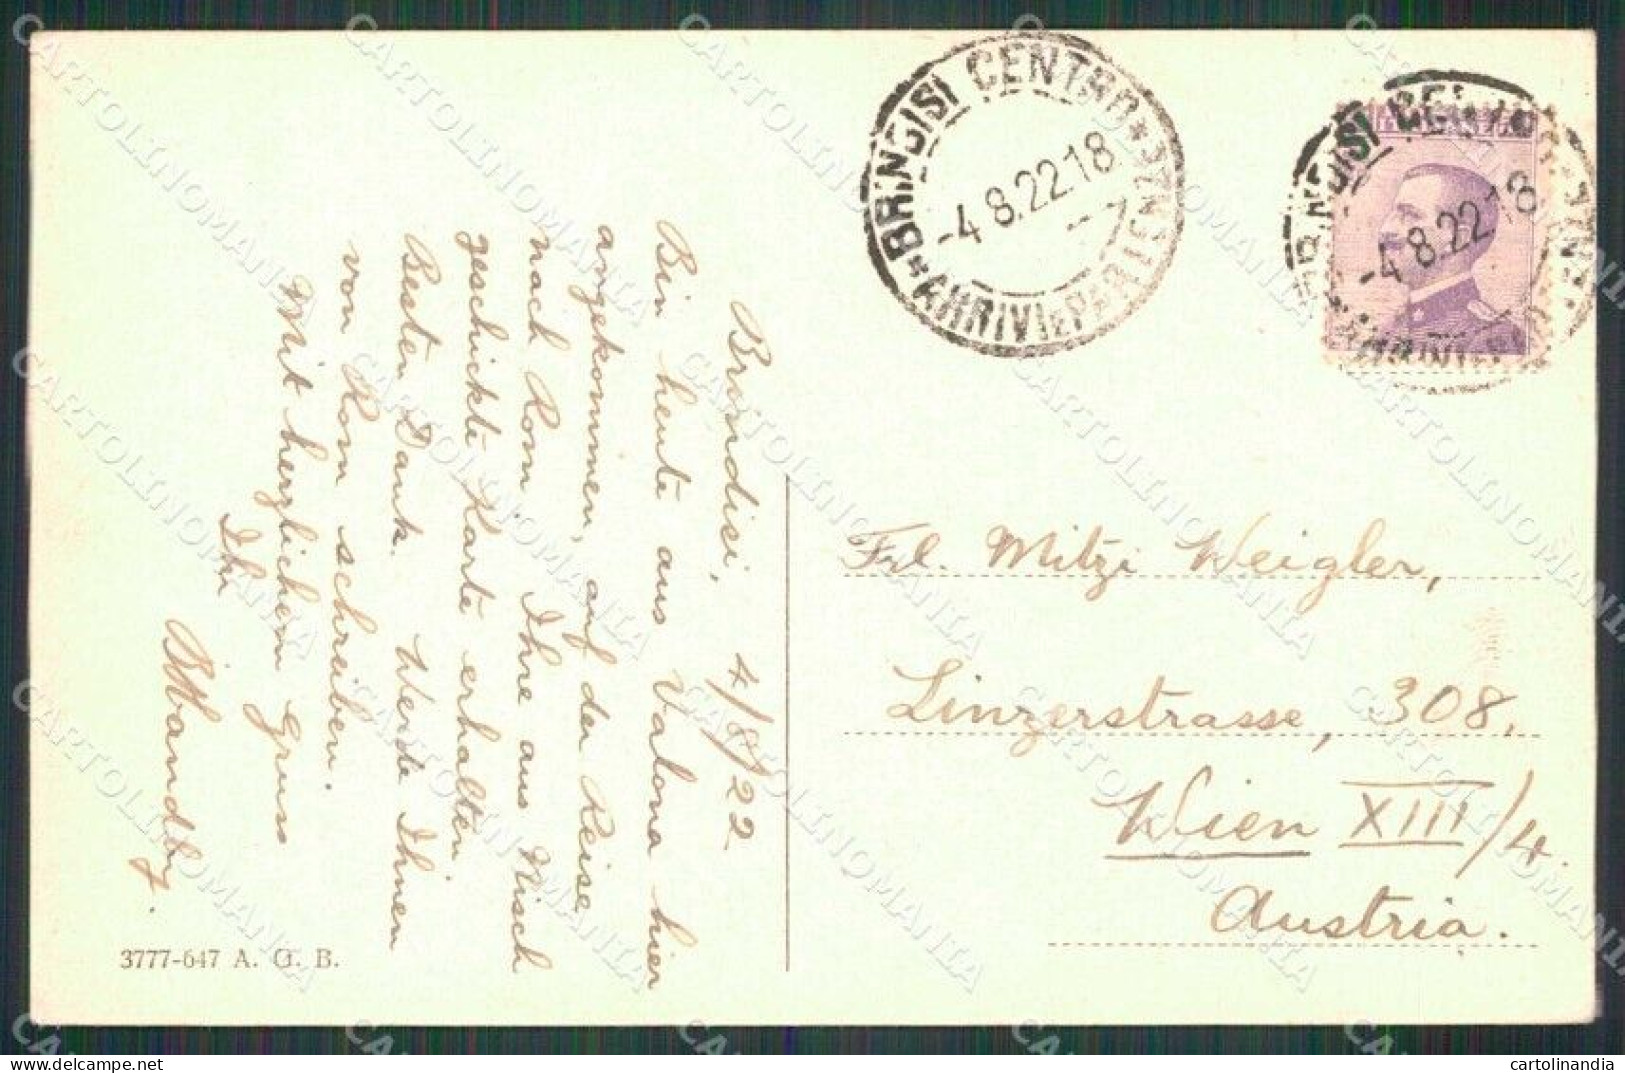 Brindisi, 4/8/22
Bin heute aus Valona hier
angekommen, auf der Reise
nach Rom. Ihre aus Nisch
geschickte Karte erhalten.
Besten Dank. Werde Ihnen
von Rom schreiben.
Mit herzlichem Gruss
Ihr
3777-647 A. G. B.
BRINDISI CENTRO
-4 8.22.18
ARRIVI E PARTENZE
BRINDISI CENTRO
-4 8.22.18
Frl. Mitzi Weigler,
Linzerstrasse, 308,
Wien XIII/4.
Austria.
CARTOLINOMANIA
cartolinandia.net
cartolinandia